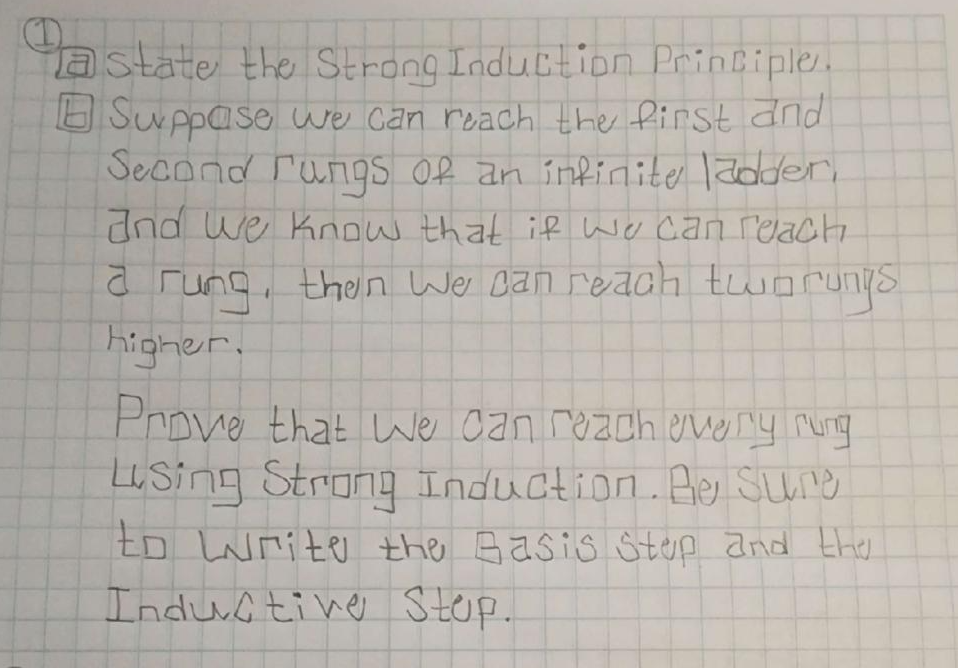 ①
a State the Strong Induction Principle.
b Suppose we can reach the first and
second rungs of an infinite ladder,
and we know that if we can reach
a rung, then we can reach two rungs
higher.
Prove that we can reach every rung
using Strong Induction. Be sure
to write the Basis step and the
Inductive Step.